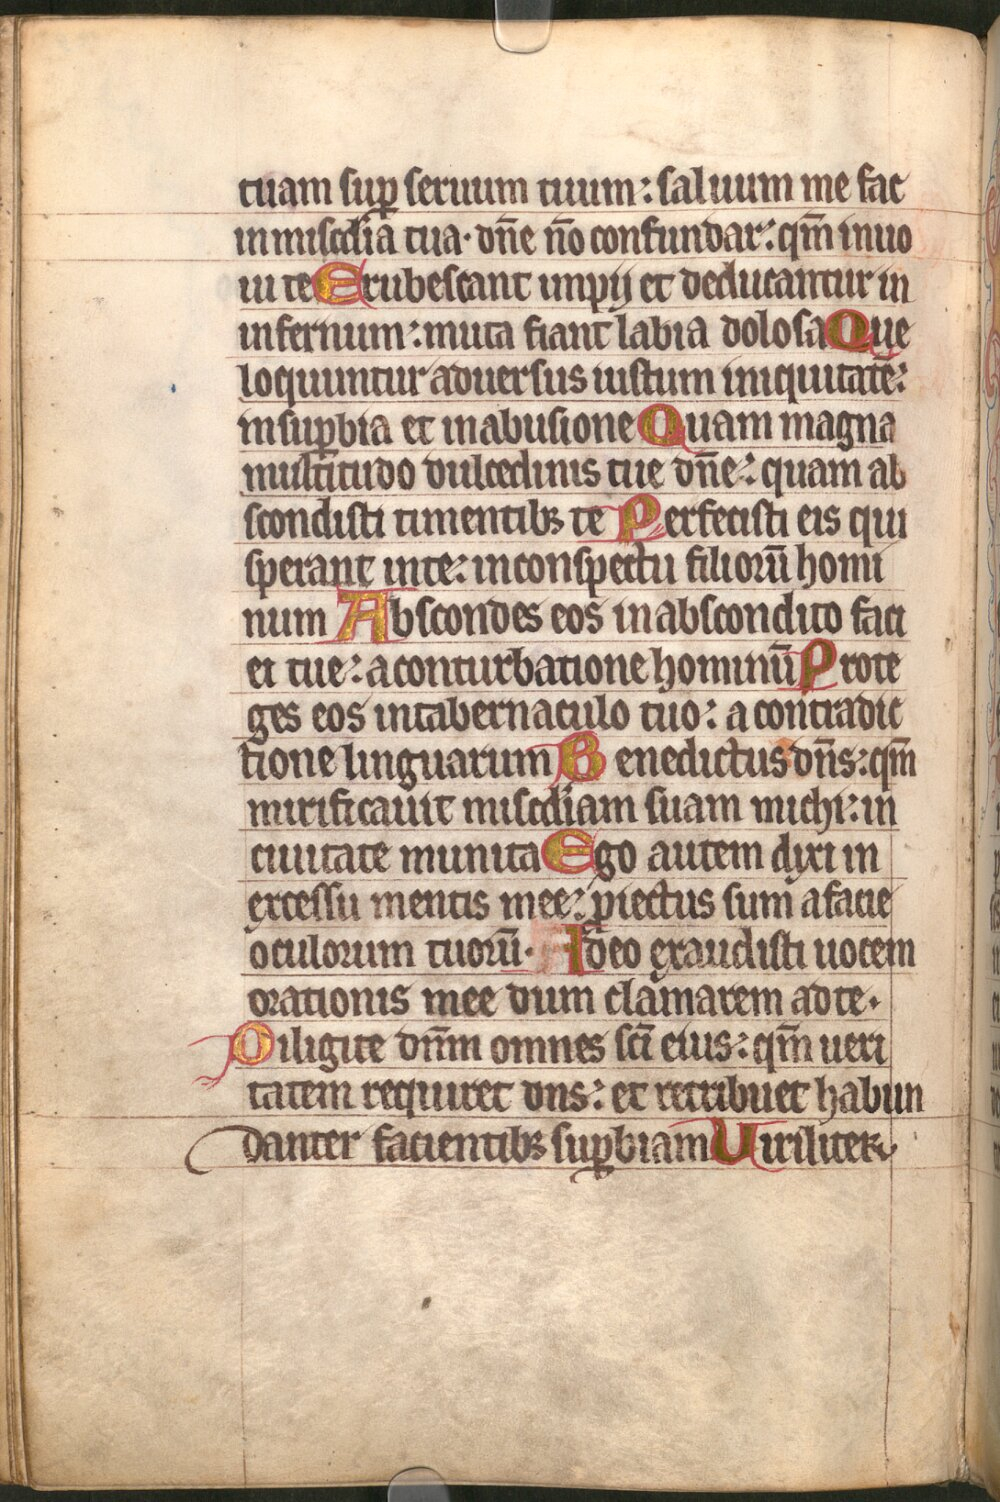 tuam sup̱ seruum tuum: saluum me fac
in misc̄dia tua. dn̄e nō confundar: qm̄ inuo
cui te Erubescant impij et deducantur in
infernum: muta fiant labia dolosa Que
loquuntur aduersus iustum iniquitatē:
in sup̱bia et in abusione Quam magna
multitudo dulcedinis tue dn̄e: quam ab
scondisti timentibꝫ te Perfecisti eis qui
sperant in te: in conspectu filiorū homi
num Abscondes eos in abscondito faci
ei tue: a conturbatione hominū Prote
ges eos in tabernaculo tuo: a contradic
tione linguarum Benedictus dn̄s: qm̄
mirificauit misc̄diam suam michi: in
ciuitate munita Ego autem dixi in
excessu mentis mee: ꝓiectus sum a facie
oculorum tuorū. Ideo exaudisti uocem
orationis mee dum clamarem ad te.
Diligite dn̄m omnes sc̄i eius: qm̄ ueri
tatem requiret dns: et retribuet habun
danter facientibꝫ sup̱biam Uiriliter